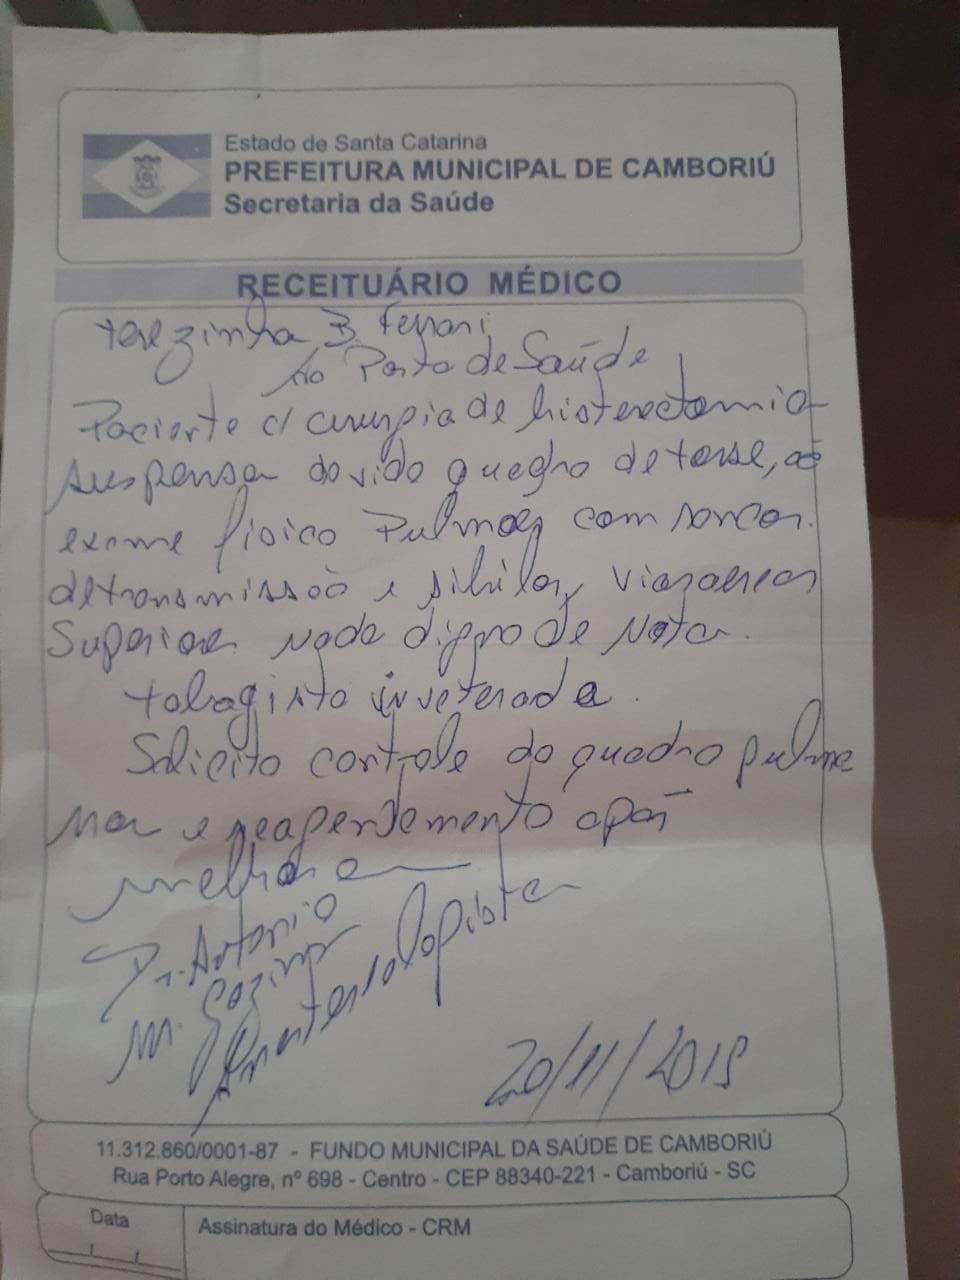 Estado de Santa Catarina
PREFEITURA MUNICIPAL DE CAMBORIÚ
Secretaria da Saúde
RECEITUÁRIO MÉDICO
Terezinha B. Ferrari
Ao Posto de Saúde
Paciente c/ cirurgia de histerectomia
suspensa devido quadro de tosse, ao
exame físico Pulmões com roncos
de transmissão e sibilos, vias aereas
Superiores nada digno de nota.
tabagista inveterada.
Solicito controle do quadro pulmo
nar e reagendamento após
melhora
Dr. Antonio
M.
Anestesiologista
20/11/2019
11.312.860/0001-87 - FUNDO MUNICIPAL DA SAÚDE DE CAMBORIÚ
Rua Porto Alegre, nº 698 - Centro - CEP 88340-221 - Camboriú - SC
Data
Assinatura do Médico - CRM